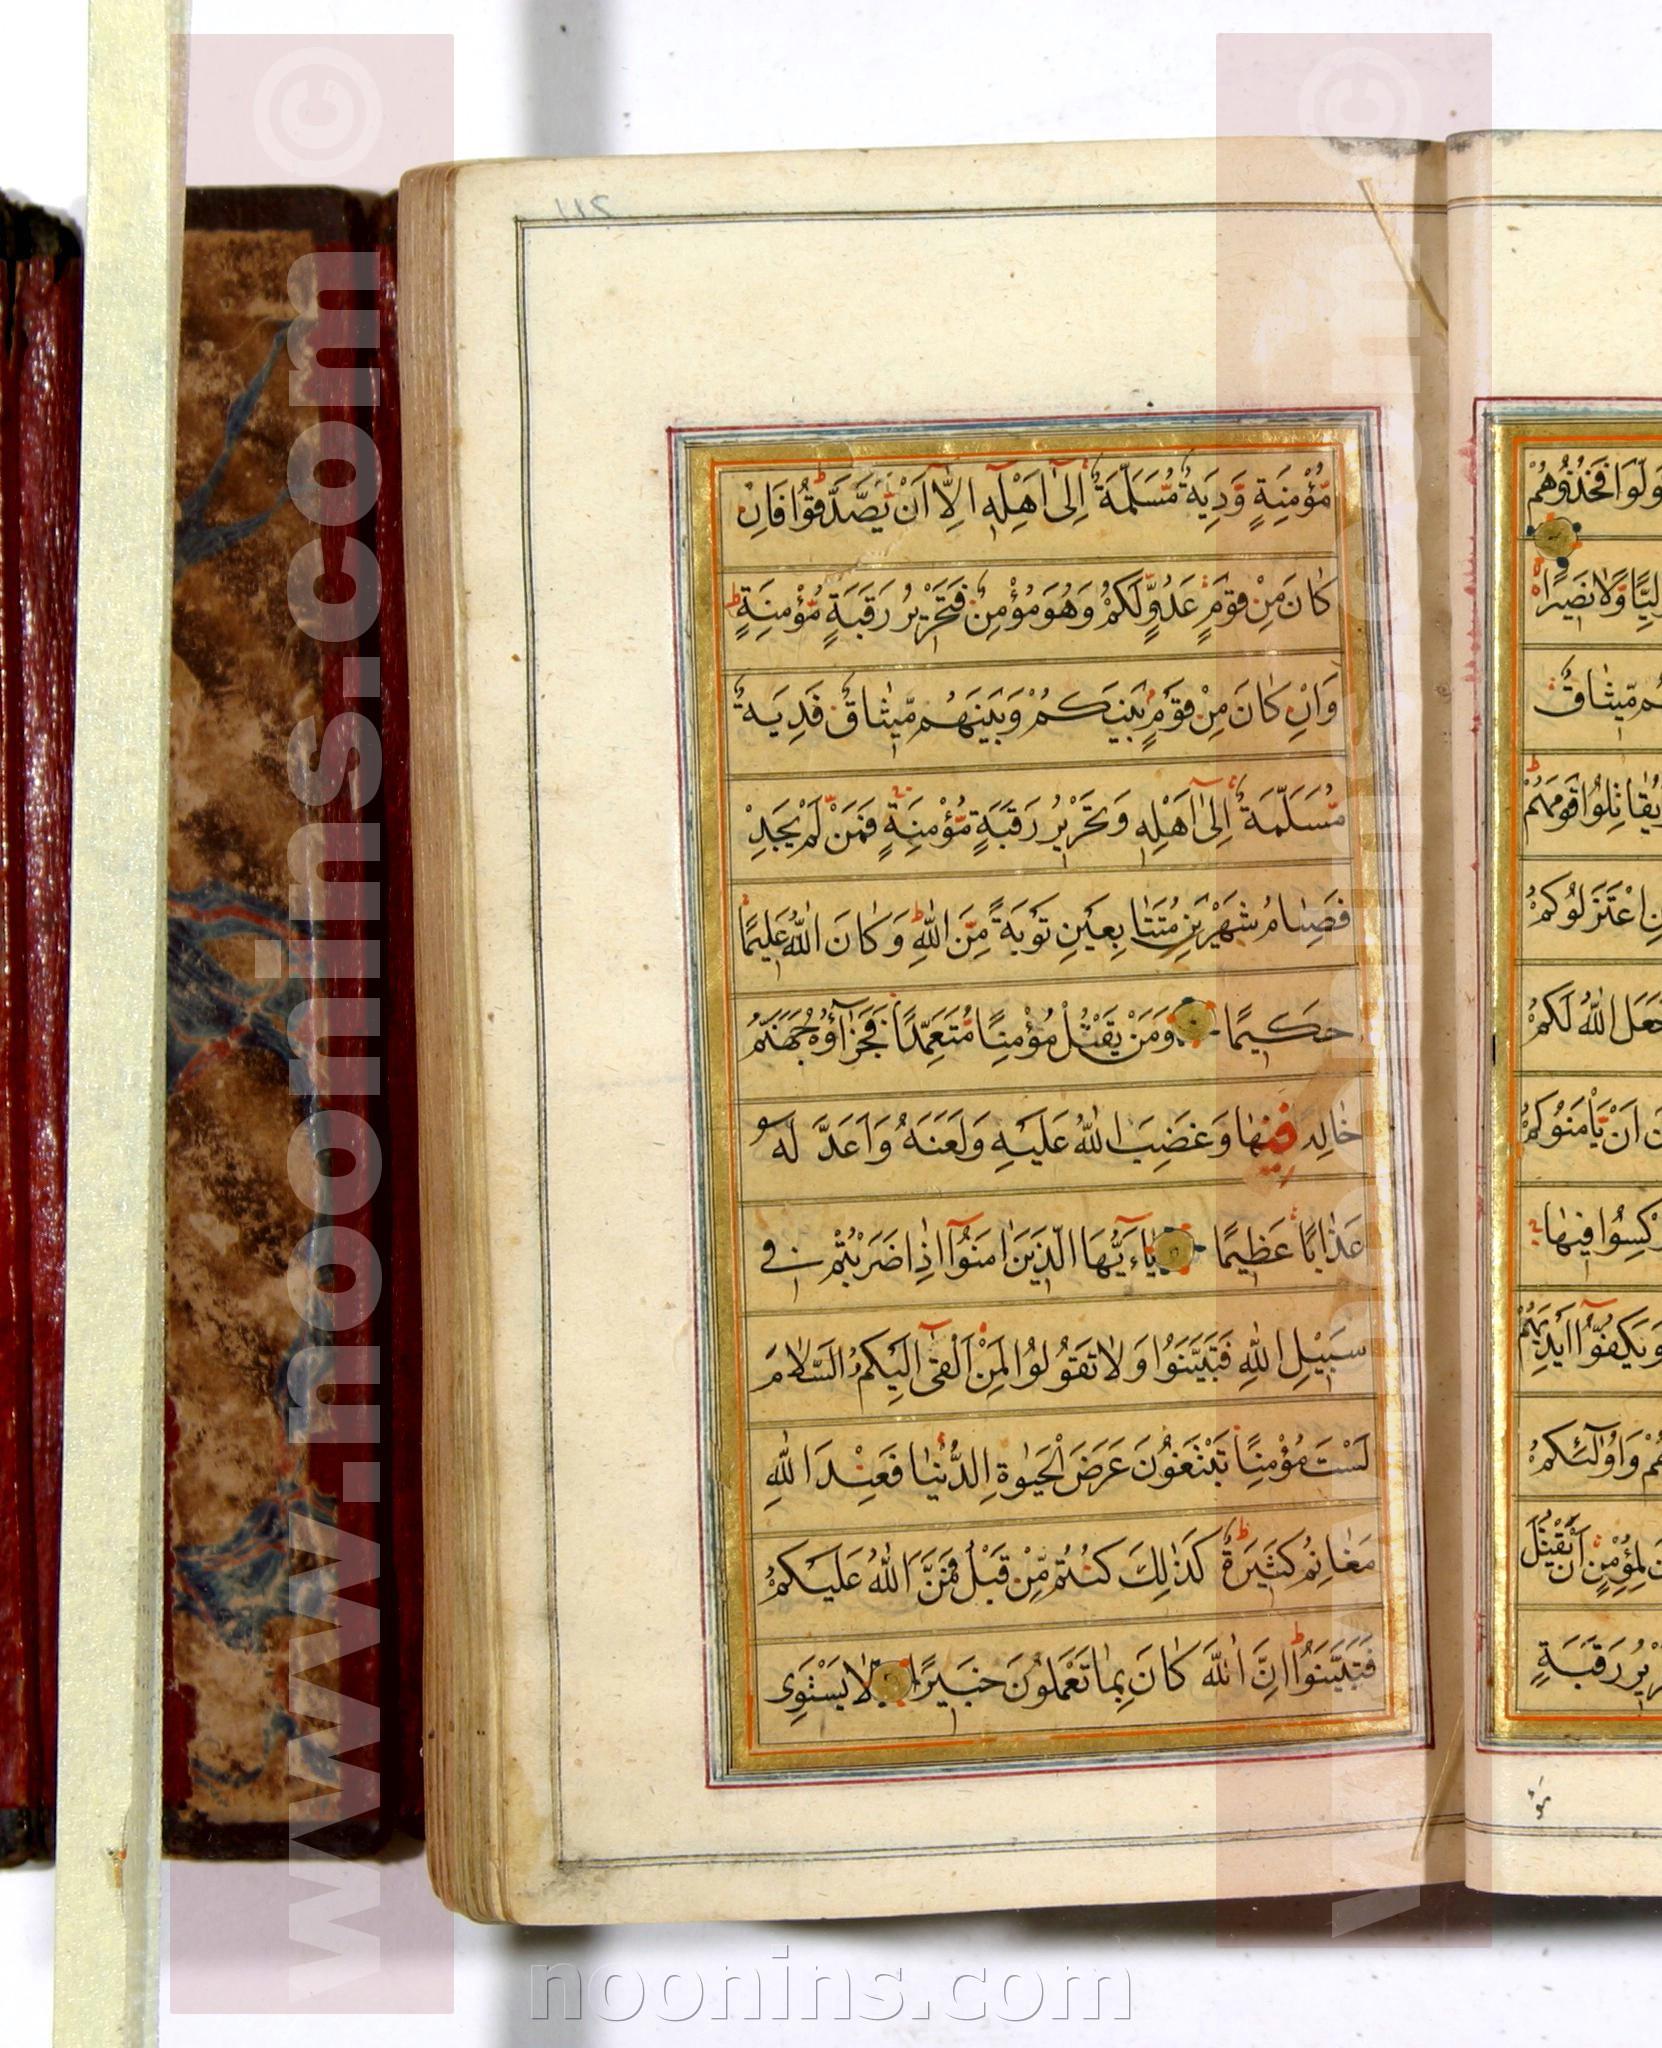 مُؤْمِنَةٍ وَّدِيَةٌ مُّسَلَّمَةٌ اِلىٰٓ اَهْلِهٖٓ اِلَّآ اَنْ يَّصَّدَّقُوْا فَاِنْ
كَانَ مِنْ قَوْمٍ عَدُوٍّ لَّكُمْ وَهُوَ مُؤْمِنٌ فَتَحْرِيْرُ رَقَبَةٍ مُّؤْمِنَةٍ
وَاِنْ كَانَ مِنْ قَوْمٍ بَيْنَكُمْ وَبَيْنَهُمْ مِّيْثَاقٌ فَدِيَةٌ
مُّسَلَّمَةٌ اِلىٰٓ اَهْلِهٖ وَتَحْرِيْرُ رَقَبَةٍ مُّؤْمِنَةٍ فَمَنْ لَّمْ يَجِدْ
فَصِيَامُ شَهْرَيْنِ مُتَتَابِعَيْنِ تَوْبَةً مِّنَ اللّٰهِ وَكَانَ اللّٰهُ عَلِيْمًا
حَكِيْمًا وَمَنْ يَّقْتُلْ مُؤْمِنًا مُّتَعَمِّدًا فَجَزَآؤُهٗ جَهَنَّمُ
خَالِدًا فِيْهَا وَغَضِبَ اللّٰهُ عَلَيْهِ وَلَعَنَهٗ وَاَعَدَّ لَهٗ
عَذَابًا عَظِيْمًا يَآءَيُّهَا الَّذِيْنَ اٰمَنُوْٓا اِذَا ضَرَبْتُمْ فِىْ
سَبِيْلِ اللّٰهِ فَتَبَيَّنُوْا وَلَا تَقُوْلُوْا لِمَنْ اَلْقىٰٓ اِلَيْكُمُ السَّلَامَ
لَسْتَ مُؤْمِنًا تَبْتَغُوْنَ عَرَضَ الْحَيٰوةِ الدُّنْيَا فَعِنْدَ اللّٰهِ
مَغَانِمُ كَثِيْرَةٌ كَذٰلِكَ كُنْتُمْ مِّنْ قَبْلُ فَمَنَّ اللّٰهُ عَلَيْكُمْ
فَتَبَيَّنُوْا اِنَّ اللّٰهَ كَانَ بِمَا تَعْمَلُوْنَ خَبِيْرًا لَا يَسْتَوِى
تَوَلَّوْا فَخُذُوْهُمْ
وَلِيًّا وَّلَا نَصِيْرًا
مِّيْثَاقٌ
يُقَاتِلُوْا قَوْمَهُمْ
اعْتَزَلُوْكُمْ
جَعَلَ اللّٰهُ لَكُمْ
اَنْ يَّأْمَنُوْكُمْ
اُرْكِسُوْا فِيْهَا
وَيَكُفُّوْٓا اَيْدِيَهُمْ
وَاُولٰٓئِكُمْ
لِمُؤْمِنٍ اَنْ يَّقْتُلَ
رَقَبَةٍ
www.noonins.com ©
www.noonins.com ©
noonins.com